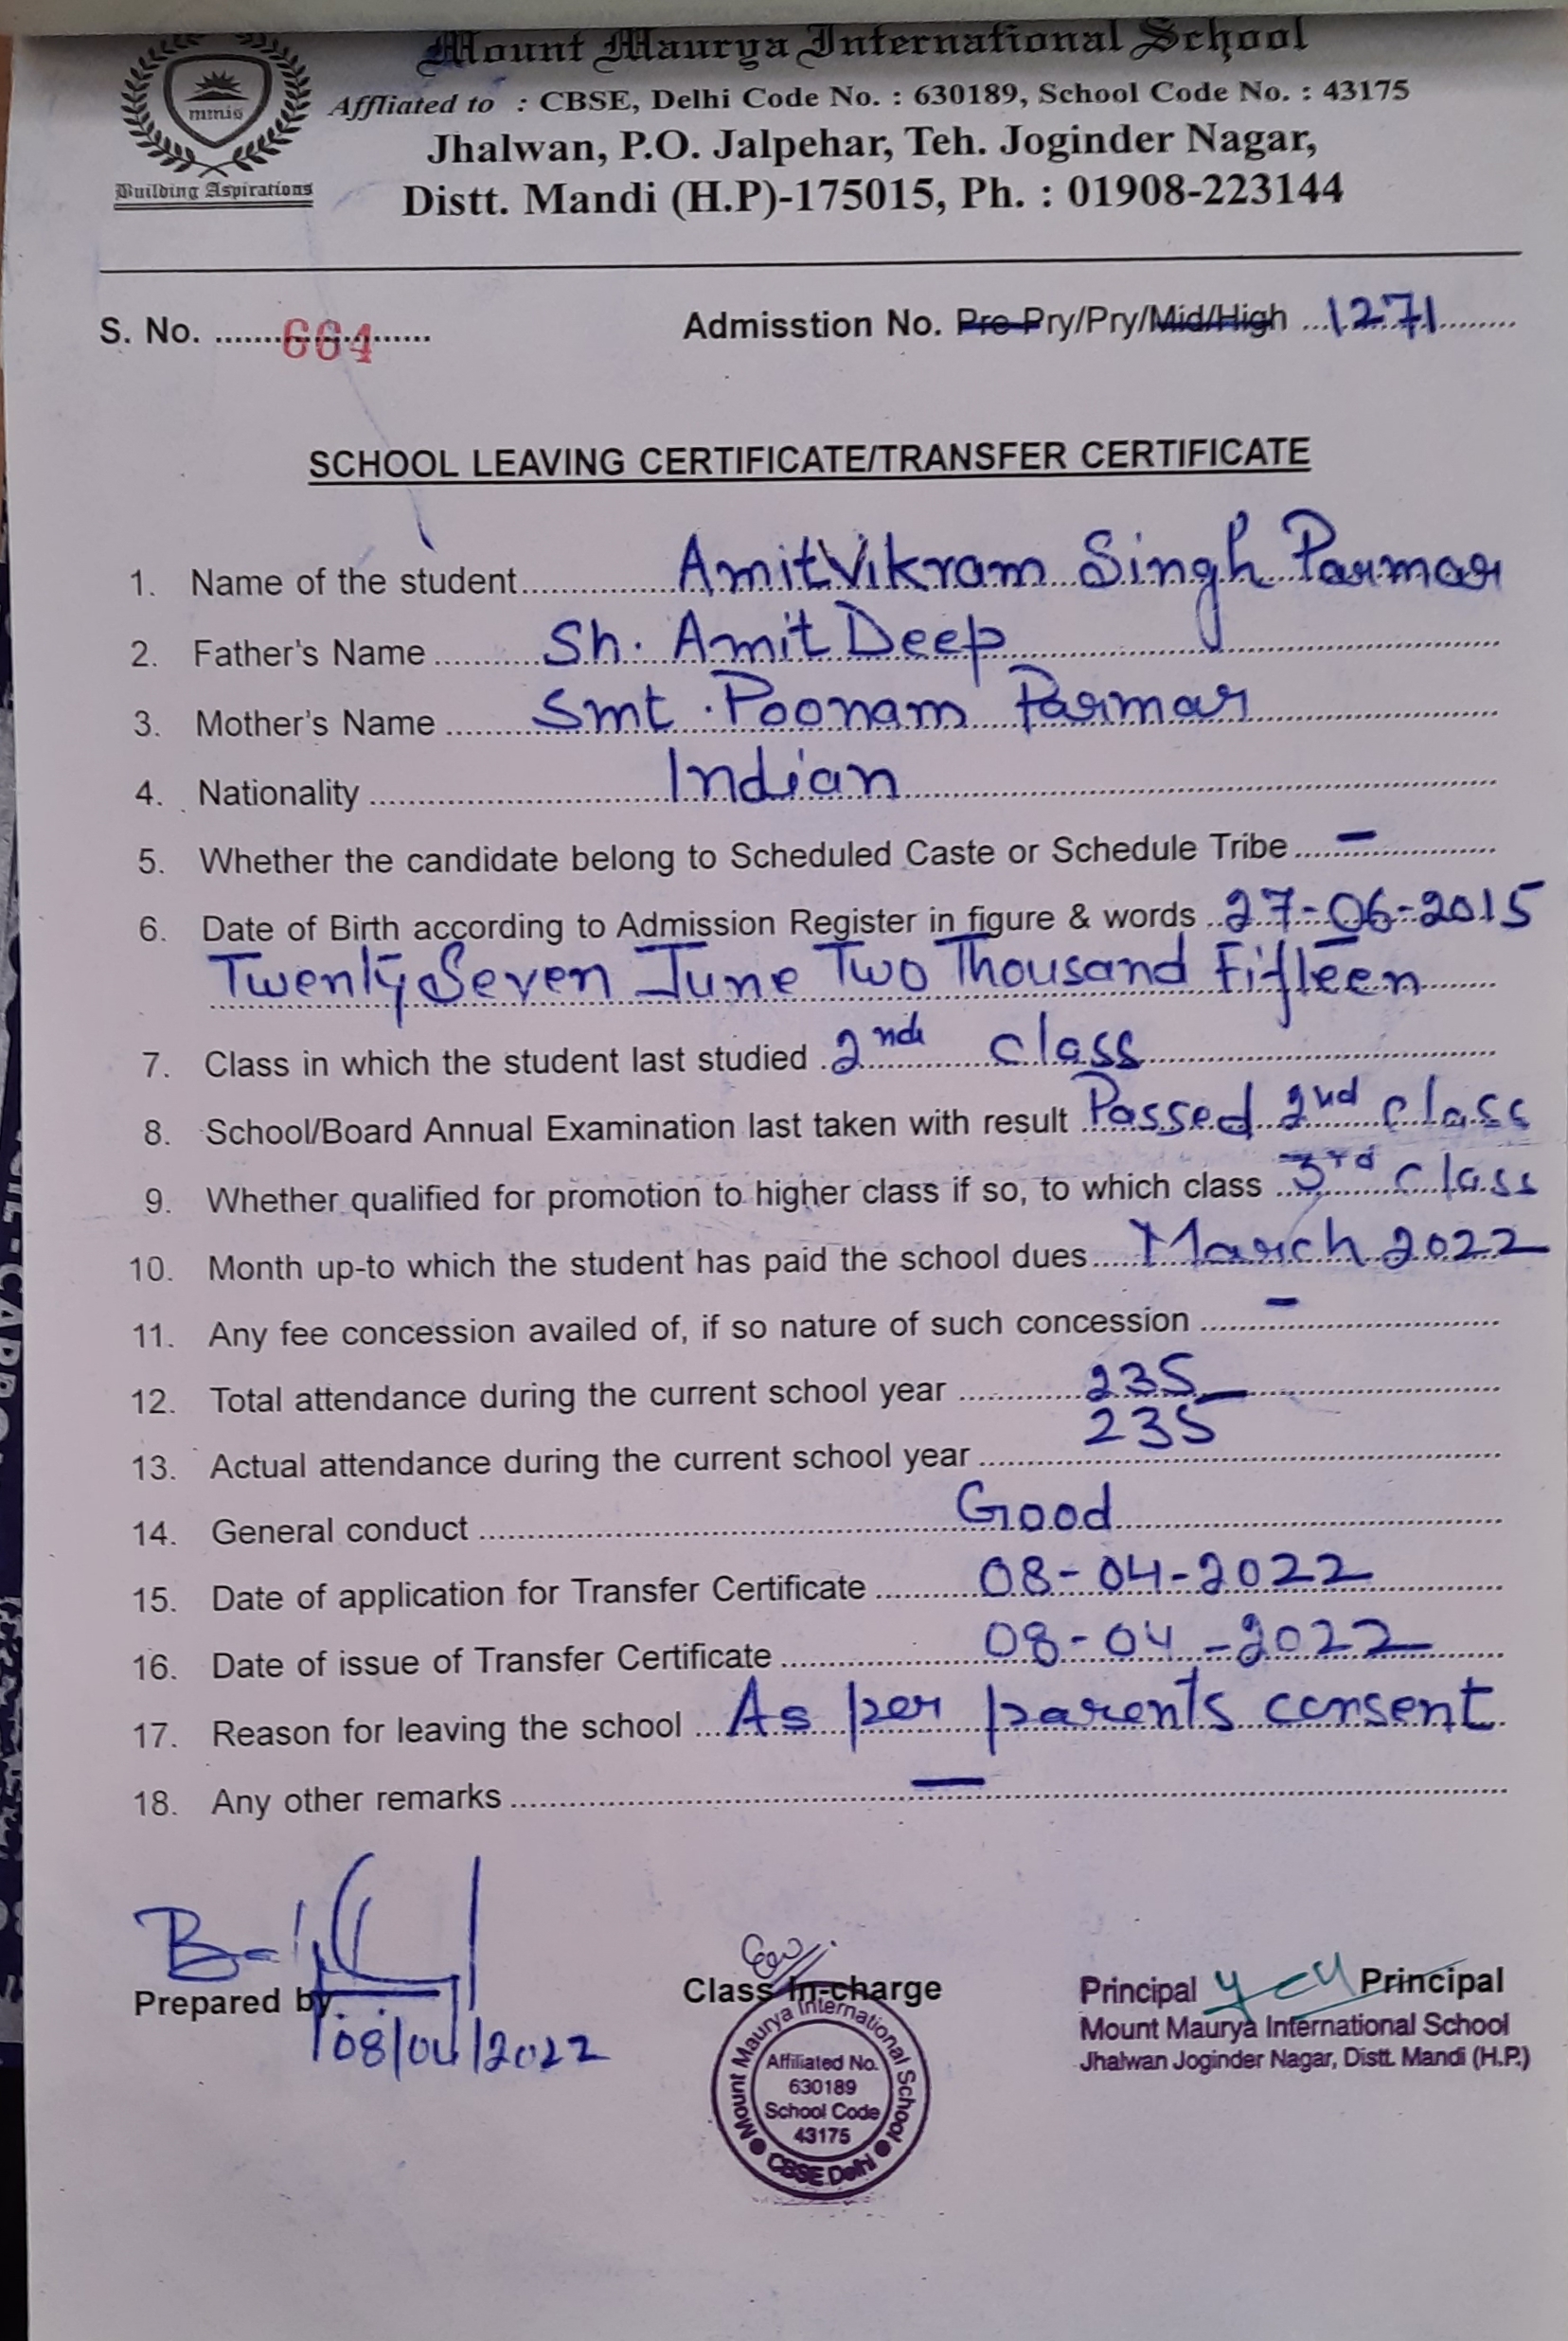 Mount Maurya International School
mmis
Building Aspirations
Affliated to : CBSE, Delhi Code No. : 630189, School Code No. : 43175
Jhalwan, P.O. Jalpehar, Teh. Joginder Nagar,
Distt. Mandi (H.P)-175015, Ph. : 01908-223144
S. No. ....... 664 .......
Admisstion No. Pre-Pry/Pry/Mid/High ... 1271 .......
SCHOOL LEAVING CERTIFICATE/TRANSFER CERTIFICATE
1. Name of the student ....... Amit Vikram Singh Parmar
2. Father's Name ....... Sh. Amit Deep .......
3. Mother's Name ....... Smt. Poonam Parmar .......
4. Nationality ....... Indian .......
5. Whether the candidate belong to Scheduled Caste or Schedule Tribe ....... – .......
6. Date of Birth according to Admission Register in figure & words .. 27-06-2015
Twenty Seven June Two Thousand Fifteen .......
7. Class in which the student last studied . 2nd class .......
8. School/Board Annual Examination last taken with result . Passed 2nd class
9. Whether qualified for promotion to higher class if so, to which class ... 3rd class
10. Month up-to which the student has paid the school dues ..... March 2022
11. Any fee concession availed of, if so nature of such concession ....... – .......
12. Total attendance during the current school year ....... 235 .......
13. Actual attendance during the current school year ....... 235 .......
14. General conduct ....... Good .......
15. Date of application for Transfer Certificate ....... 08-04-2022 .......
16. Date of issue of Transfer Certificate ....... 08-04-2022 .......
17. Reason for leaving the school ... As per parents consent
18. Any other remarks ....... — .......
Prepared by
08/04/2022
Class In-charge
Mount Maurya International School
Affiliated No.
630189
School Code
43175
CBSE Delhi
Principal Principal
Mount Maurya International School
Jhalwan Joginder Nagar, Distt. Mandi (H.P.)